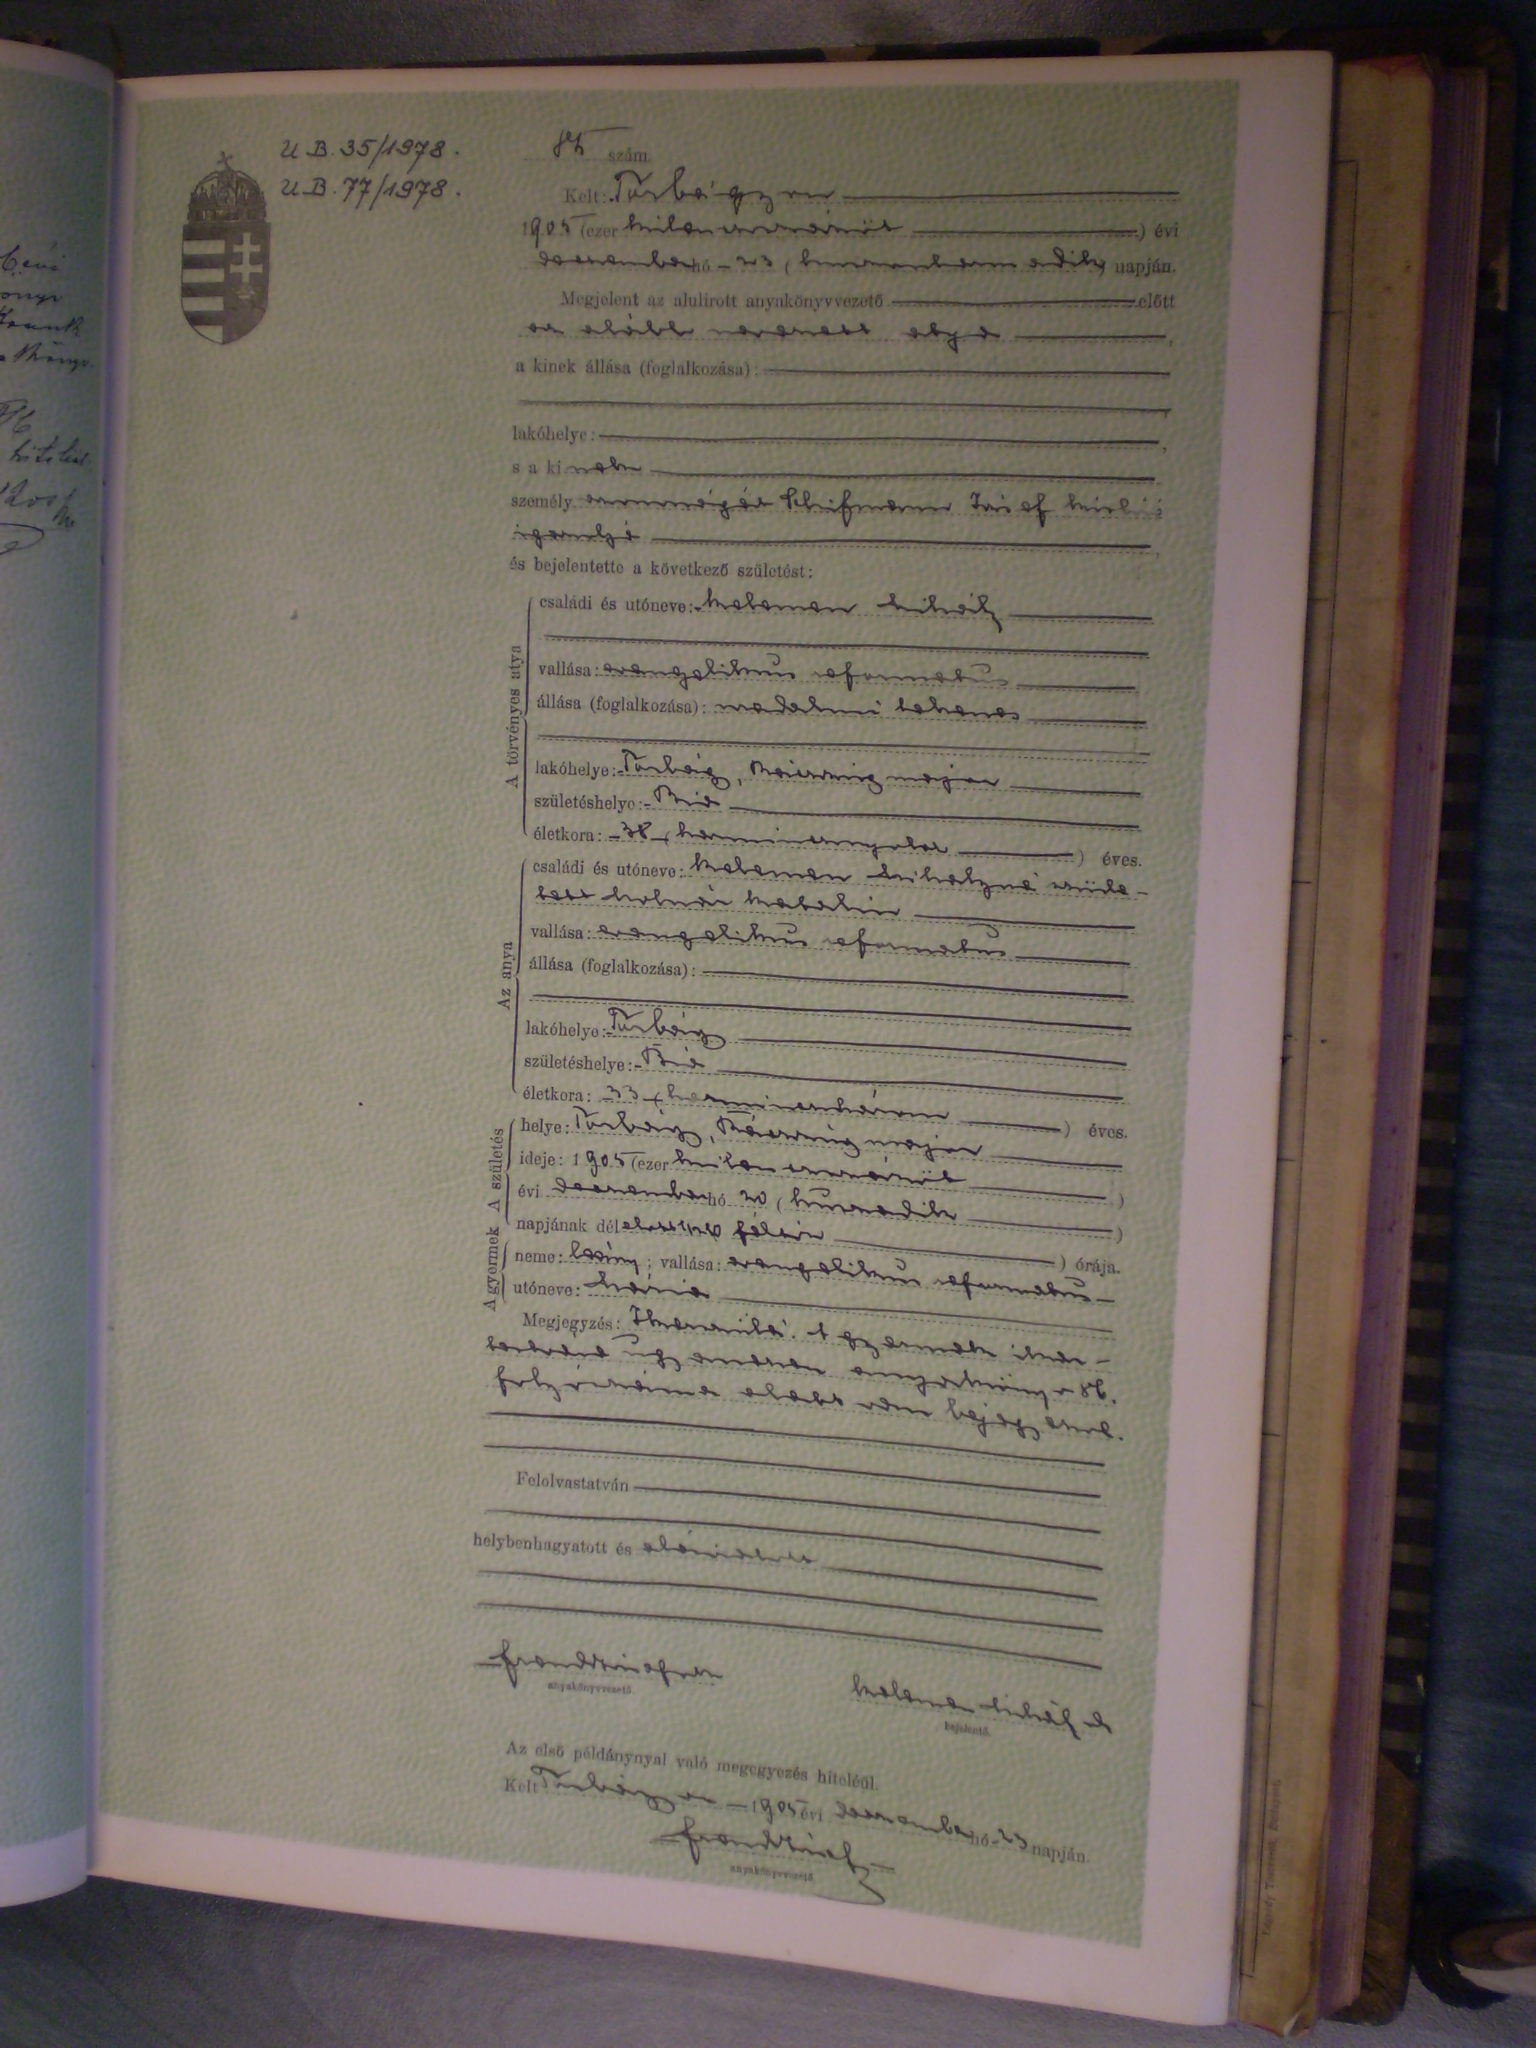 U B. 35/1978.
U B. 77/1978.
85 szám.
Kelt: Torbágyon
1905 (ezer kilencszázöt) évi
december hó 23 (huszonharmadik) napján.
Megjelent az alulirott anyakönyvvezető előtt
az alább nevezett atya,
a kinek állása (foglalkozása):
lakóhelye:
s a ki
személyazonosságát József
igazolja
és bejelentette a következő születést:
A törvényes atya
családi és utóneve: Kelemen Mihály
vallása: evangelikus református
állása (foglalkozása): uradalmi tehenes
lakóhelye: Torbágy, major
születéshelye: Bia
életkora: 38 (harmincnyolc) éves.
Az anya
családi és utóneve: Kelemen Mihályné szüle-
tett Molnár Katalin
vallása: evangelikus református
állása (foglalkozása):
lakóhelye: Torbágy
születéshelye: Bia
életkora: 33 (harminchárom) éves.
A születés
helye: Torbágy, major
ideje: 1905 (ezer kilencszázöt)
évi december hó 20 (huszadik)
napjának dél előtt órája.
A gyermek
neme: leány; vallása: evangelikus református
utóneve: Mária
Megjegyzés: Ikerszülés. A gyermek iker-
testvére ugyanezen anyakönyv 86.
folyószáma alatt van bejegyezve.
Felolvastatván
helybenhagyatott és aláíratott
anyakönyvvezető.
Kelemen Mihály
bejelentő.
Az első példánynyal való megegyezés hiteléül.
Kelt Torbágyon 1905 évi december hó 23 napján.
anyakönyvvezető